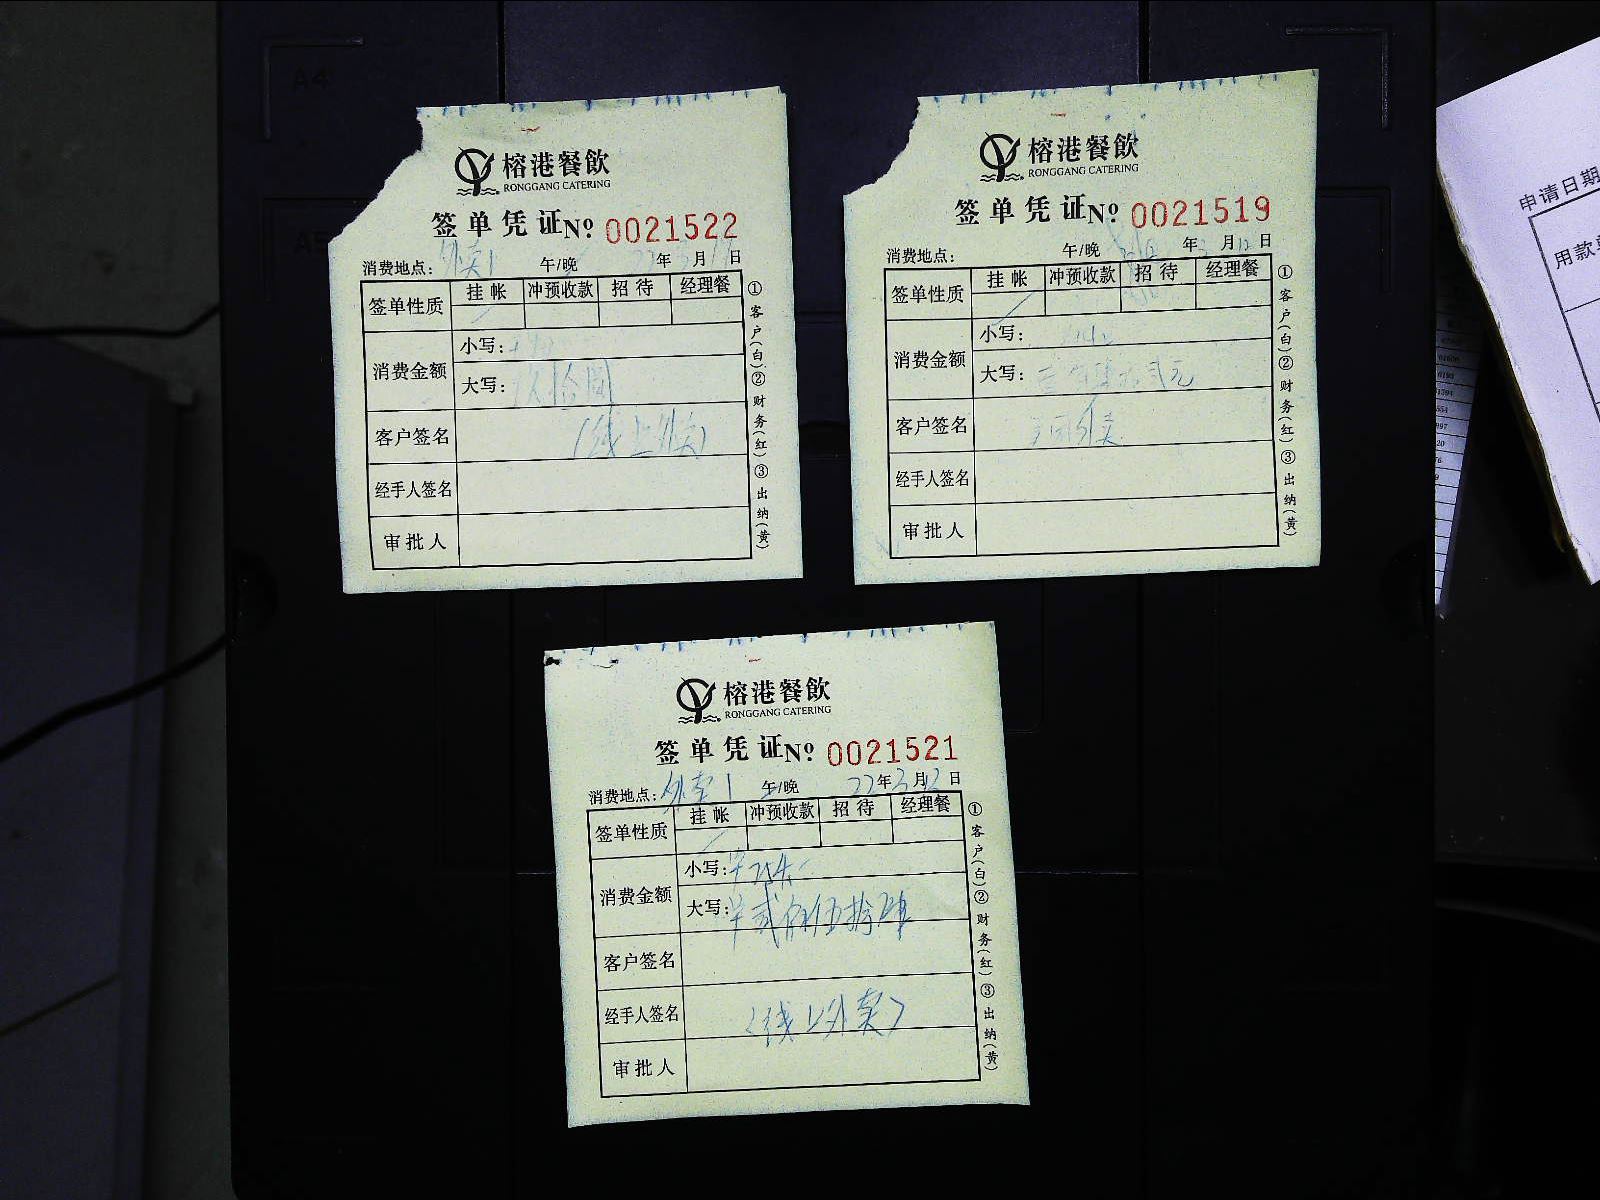 榕港餐飲
RONGGANG CATERING
签单凭证 Nº 0021522
消费地点: 外卖1 午/晚 22年 月 日
签单性质 挂帐 冲预收款 招待 经理餐
消费金额 小写:
大写: 玖拾圆
客户签名 (线上外卖)
经手人签名
审批人
①客户(白)②财务(红)③出纳(黄)
榕港餐飲
RONGGANG CATERING
签单凭证 Nº 0021519
消费地点: 午/晚 年 3月12日
签单性质 挂帐 冲预收款 招待 经理餐
消费金额 小写:
大写:
客户签名
经手人签名
审批人
①客户(白)②财务(红)③出纳(黄)
榕港餐飲
RONGGANG CATERING
签单凭证 Nº 0021521
消费地点: 外卖1 午/晚 22年3月12日
签单性质 挂帐 冲预收款 招待 经理餐
消费金额 小写:
大写: 贰佰伍拾肆
客户签名
经手人签名 (线上外卖)
审批人
①客户(白)②财务(红)③出纳(黄)
申请日期
用款
A4